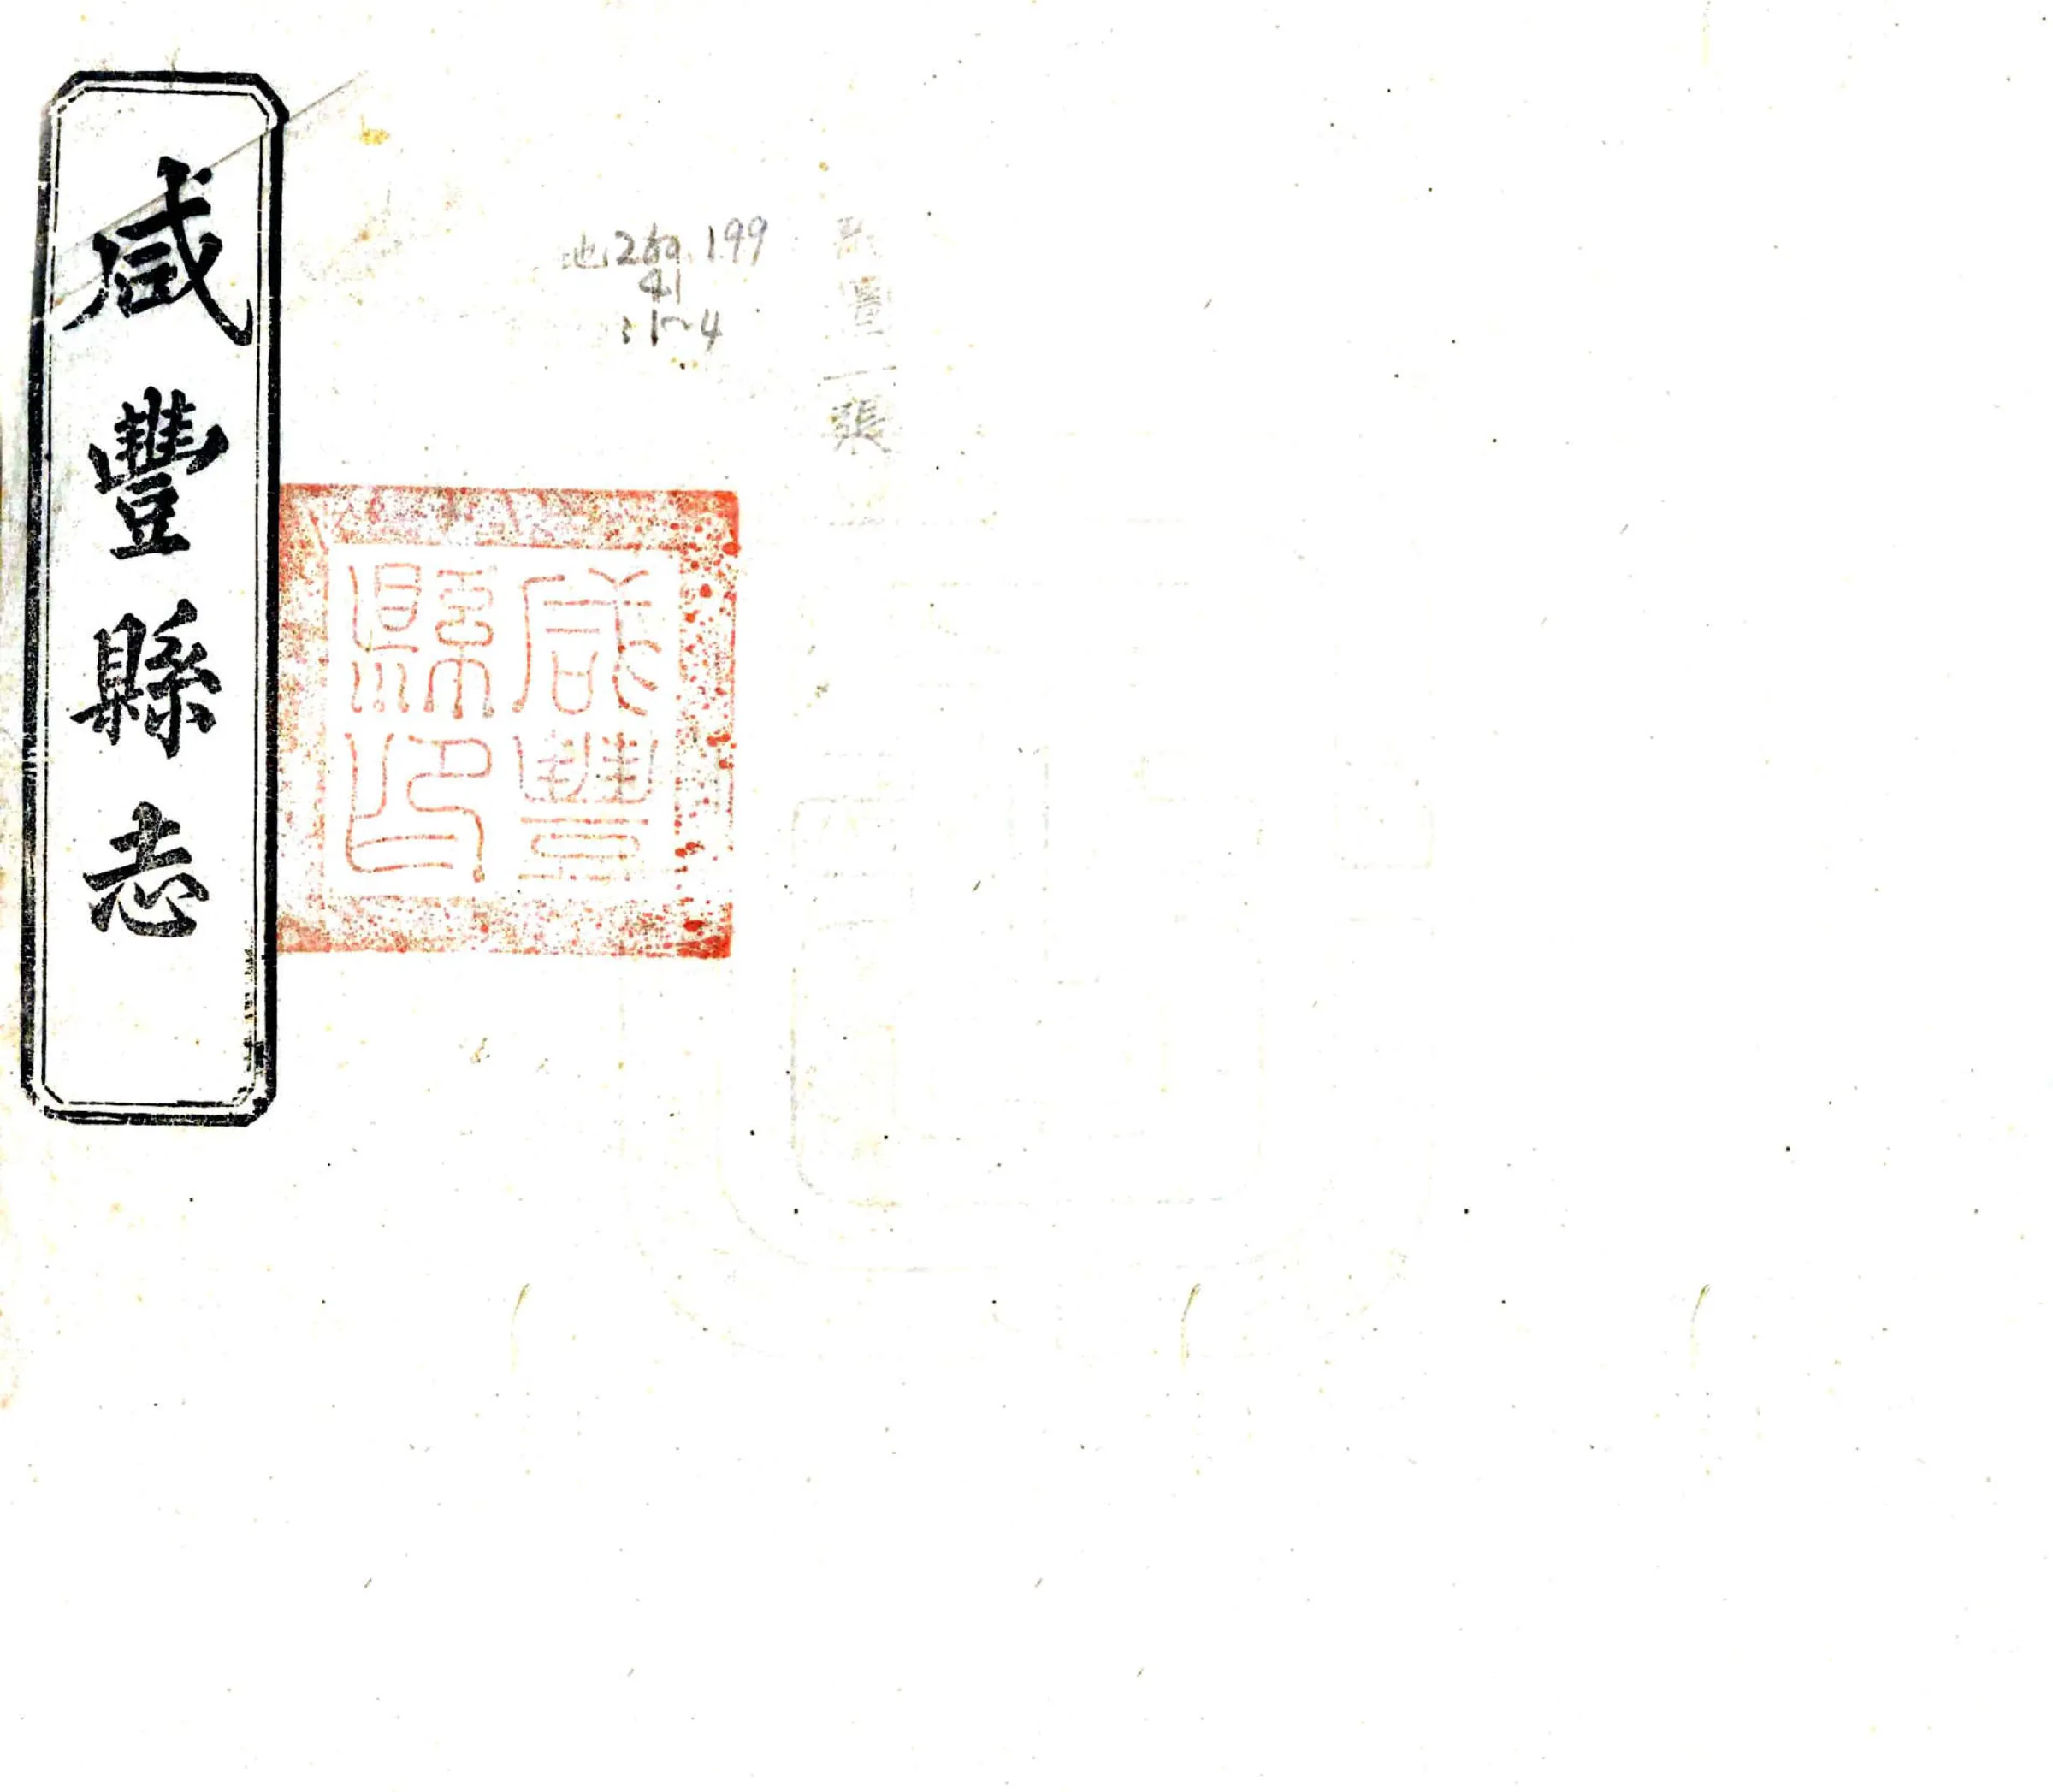 咸豐縣志
咸豐
縣印
地 269.199
41
:1~4
圖一張